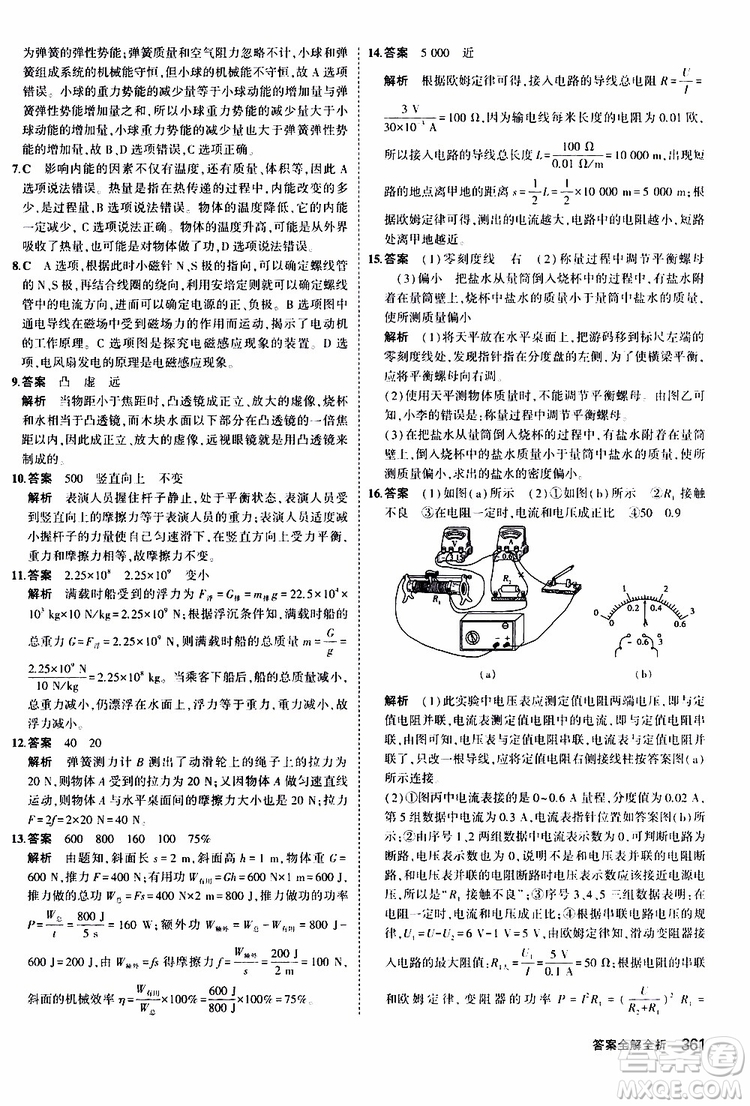 为弹簧的弹性势能；弹簧质量和空气阻力忽略不计，小球和弹
簧组成系统的机械能守恒，但小球的机械能不守恒，故 A 选项
错误。小球的重力势能的减少量等于小球动能的增加量与弹
簧弹性势能增加量之和，小球重力势能的减少量大于弹簧弹
性势能的增加量，小球重力势能的减少量也大于
小球动能的增加量，故 B、D 选项错误。
7.C 影响内能的因素不仅有温度，还有质量、体积等，故 A
选项说法错误。热量是指在热传递的过程中，内能改变的多
少，是过程量，故 B 选项说法错误。物体的温度降低，其内
能一定减少，故 C 选项说法正确。物体的内能增大，可能从外界
吸收了热，也可能是外界对物体做了功，故 D 选项说法错误。
8.C A 选项，根据此时小磁针 N、S 极的指向，可以确定螺线管
的 N、S 极，再结合线圈的绕向，利用安培定则可以确定螺线
管中的电流方向，进而确定电源的正、负极。B 选项图中
通电导线在磁场中受到磁场力的作用，揭示了电动机
的工作原理。C 选项图是探究电磁感应现象的装置。D 选
项，电风扇发电的原理是电磁感应现象。
9.答案 凸 虚 远
解析 当物距小于焦距时，凸透镜成正立、放大的虚像，烧杯
和水相当于凸透镜，而木块水面以下部分在凸透镜的一倍焦
距以内，成正立、放大的虚像，远视眼镜是利用凸透镜
制成的。
10.答案 500 竖直向上 不变
解析 表演人员握住杆子静止，处于平衡状态，表演人员受
到竖直向上的摩擦力等于表演人员的重力；表演人员适度减
小握杆子的力使自己匀速滑下，在竖直方向上，受力平衡，
重力等于摩擦力，故摩擦力不变。
11.答案 2.25×10⁹ 2.25×10⁸ 变小
解析 满载时船受到的浮力为 F浮=G排=m排g=22.5×10⁴×
10³ kg×10 N/kg=2.25×10⁹ N。根据浮沉条件知，满载时
总重力 G=F浮=2.25×10⁹ N，则满载时船的总质量 m=G/g=
2.25×10⁹ N/10 N/kg=2.25×10⁸ kg。当乘客下船后，船的总质量减小，
总重力减小，仍漂浮在水面上，浮力等于总重力减小，故
浮力减小。
12.答案 40 20
解析 弹簧测力计 B 测出了动滑轮上的绳子上的拉力为
20 N，而物体 A 受到的拉力为 40 N，又因为物体匀速直线
运动，故物体 A 与水平桌面的摩擦力等于物体受到的拉力
F=2f=2×20 N=40 N。
13.答案 600 800 160 100 75%
解析 由题知，斜面长 s=2 m，斜面高 h=1 m，物体的重力
G=600 N，推力 F=400 N；有用功 W有用=Gh=600 N×1 m=600 J；
推力做的总功 W总=Fs=400 N×2 m=800 J；推力做功的功率
P=W总/t=800 J/5 s=160 W；额外功 W额外=W总-W有用=800 J-
600 J=200 J，由 W额外=fs 得摩擦力 f=W额外/s=200 J/2 m=100 N；
斜面的机械效率 η=W有用/W总×100%=600 J/800 J×100%=75%。
14.答案 5 000 近
解析 根据欧姆定律可得，接入电路的导线总电阻 R=U/I=
3 V/30×10⁻³ A=100 Ω，因为输电线每米长度的电阻为 0.01 欧，
所以接入电路的导线总长度 L=100 Ω/0.01 Ω/m=10 000 m，出现短
路的地点离甲地的距离 s=1/2L=1/2×10 000 m=5 000 m；
根据欧姆定律可得，测出的电流越大，电路中的电阻越小，短路
处离甲地越近。
15.答案 (1)零刻度线 右 (2)称量过程中调节平衡螺母
(3)偏小 把盐水从量筒倒入烧杯中的过程中，有盐水残
留在量筒壁上，使烧杯中盐水的质量小于量筒中盐水的质量，使
所测质量偏小
解析 (1)将天平放在水平桌面上，把游码移到标尺左端的
零刻度线处，静止时指针指在分度盘的左侧，为了使横梁平衡，
应将平衡螺母向右调。
(2)使用天平测物体质量时，不能再调节平衡螺母。由图乙可
知，小李的错误是：称量过程中调节平衡螺母。
(3)把盐水从量筒倒入烧杯中的过程中，有盐水残留在量筒
壁上，使倒入烧杯中的盐水质量小于量筒中盐水的质量，使所测质
量偏小。
16.答案 (1)如图(a)所示 (2)①如图(b)所示 ②R₁ 接触
不良 ③在电阻一定时，电流和电压成正比 ④50 0.9
V
A
R₁
R₂
(a)
0 1 2 3
0 0.2 0.4 0.6
A
- 0.6 3
(b)
解析 (1)此实验中电压表应测定值电阻两端电压，与定
值电阻并联，电流表测定值电阻中的电流，与定值电阻串
联，故可将电流表负接线柱与定值电阻右侧接线柱按如图(a)
所示连接。
(2)①图丙中电流表接的是 0~0.6 A，分度值为 0.02 A，
第 5 组数据中电流为 0.5 A，故电流表指针位置如答案图(b)所
示；②序号 1、2 两组数据中电流表示数为零，可判断电路为
断路，电压表也没有示数，说明定值电阻以外的电路出现
断路，又由于 1、2 两组数据断路而电路后来自动接通，可判
断原因是“R₁ 接触不良”；③序号 3、4、5 三组数据表明，当电
阻一定时，电流和电压成正比；④根据串联电路电压的规
律，U₁=U-U₂=6 V-1 V=5 V，由欧姆定律知，滑动变阻器接入电
路的最大阻值：R₁=U₁/I=5 V/0.1 A=50 Ω；根据电阻的串联
和欧姆定律，变阻器的功率 P=I²R₁=(U/(R₂+R₁))²R₁=
答案全解全析 361
答案圈
MXQE.COM